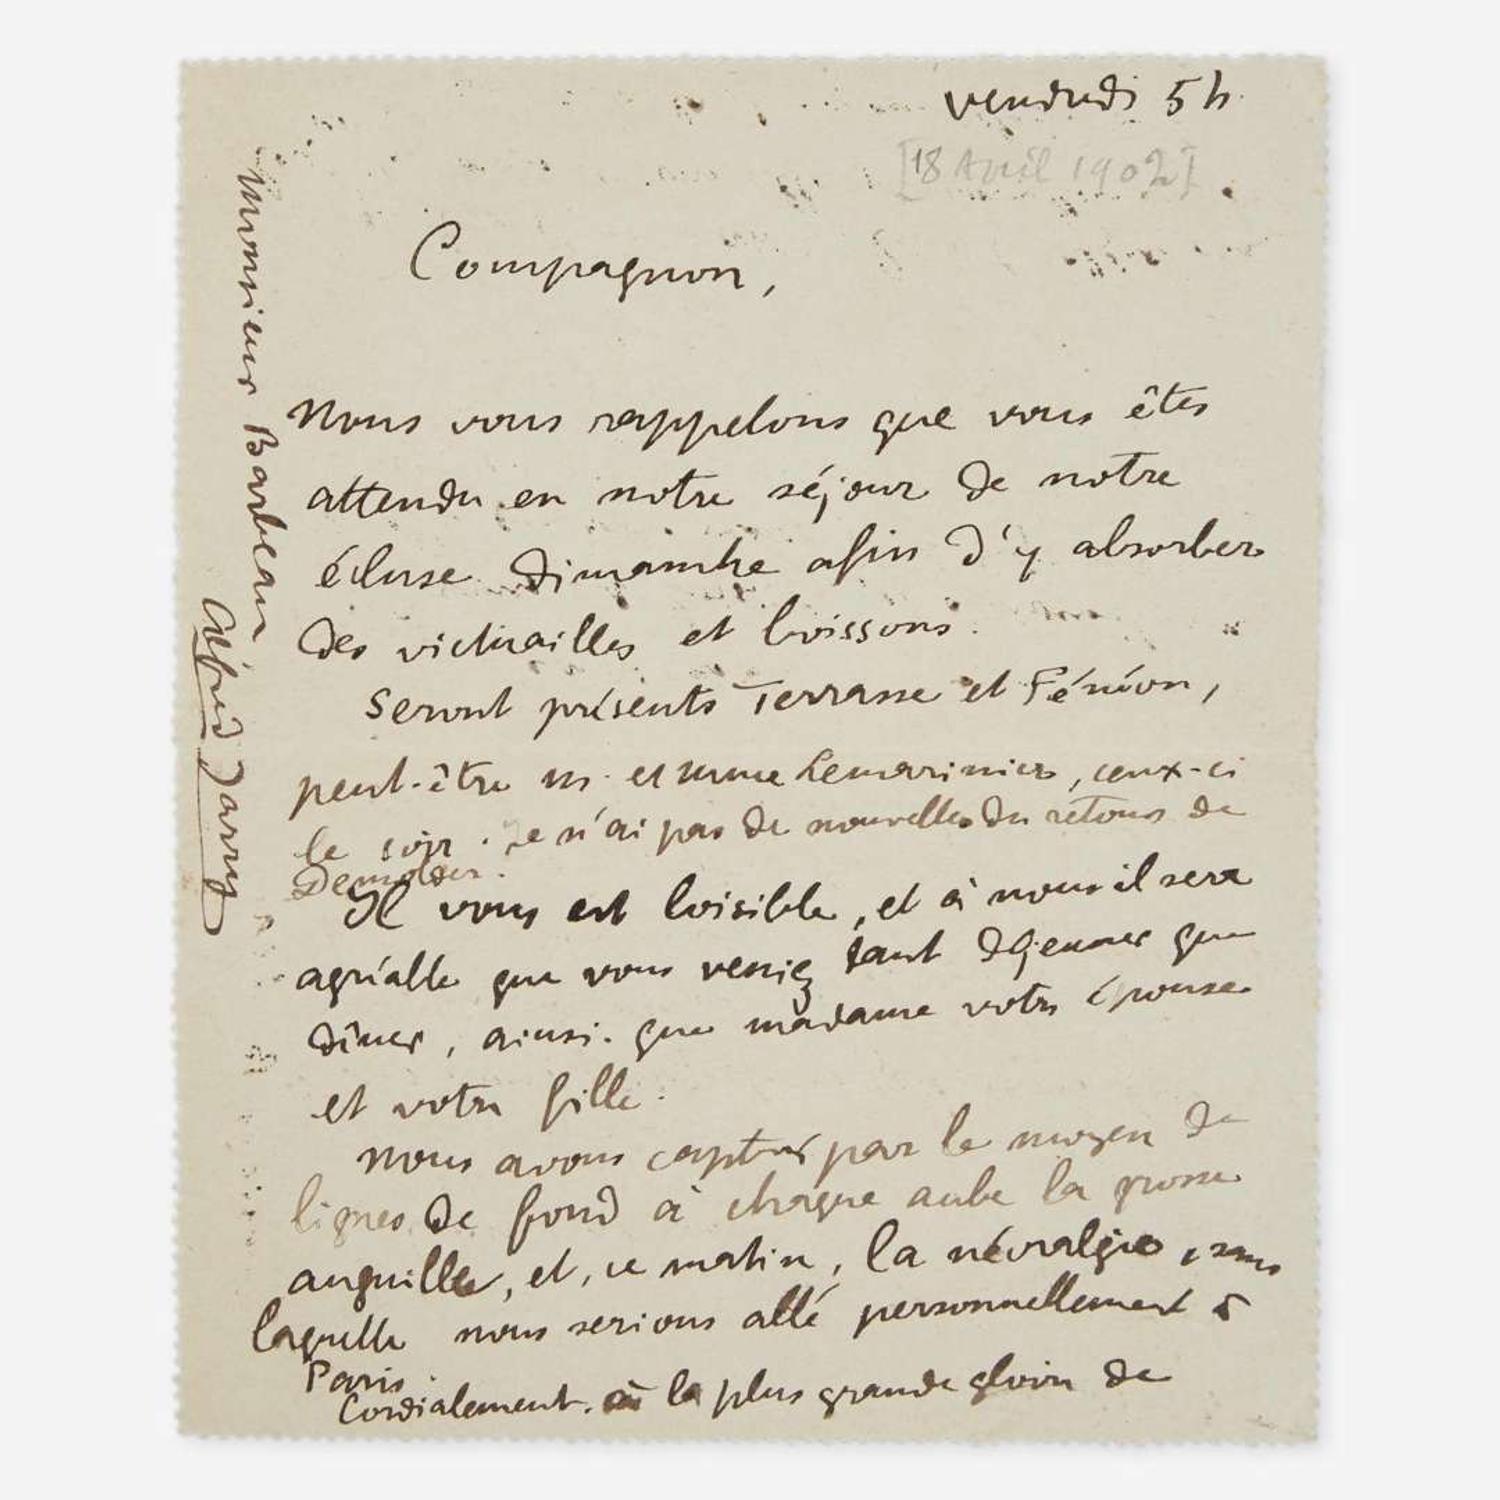 vendredi 5 h.
[18 Avril 1902]
Compagnon,
Nous vous rappelons que vous êtes
attendu en notre séjour de notre
écluse dimanche afin d'y absorber
des victuailles et boissons.
Seront présents Terrasse et Fénéon,
peut-être M. et Mme Lemarinier, ceux-ci
le soir. Je n'ai pas de nouvelles du retour de
Demolder.
Il vous est loisible, et à nous il sera
agréable que vous veniez tant déjeuner que
dîner, ainsi que madame votre épouse
et votre fille.
Nous avons capturé par le moyen de
lignes de fond à chaque aube la grosse
anguille, et, ce matin, la névralgie, sans
laquelle nous serions allé personnellement à
Paris.
Cordialement. à la plus grande gloire de
Monsieur Barbeau
Alfred Jarry